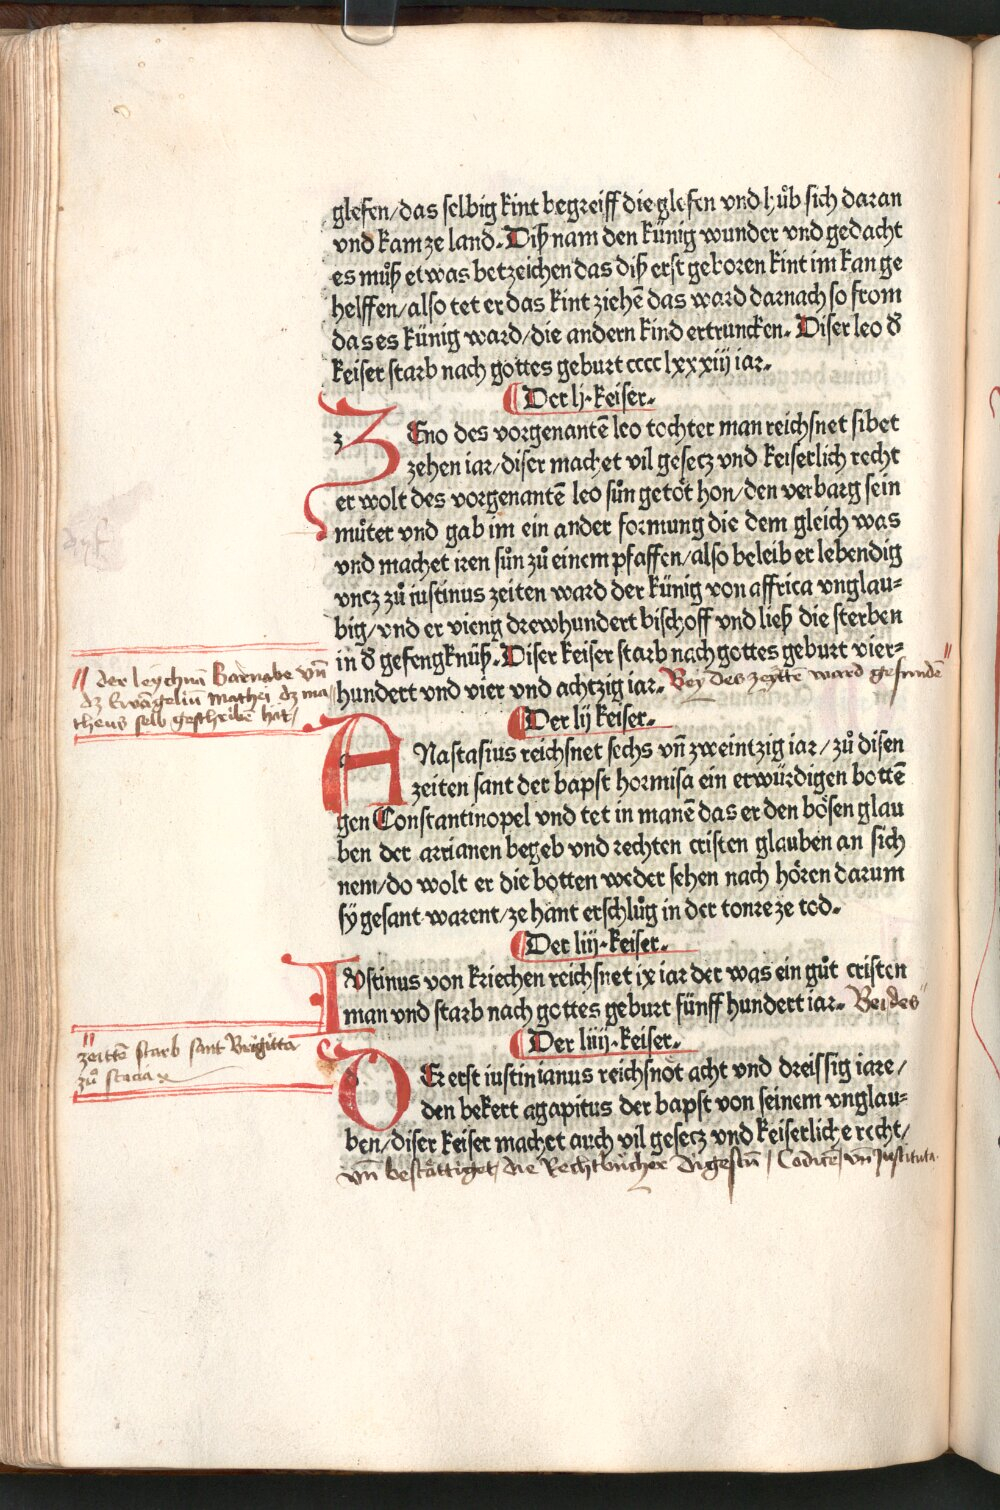 glefen/das selbig kint begreiff die glefen vnd hůb sich daran
vnd kam ze land. Diß nam den künig wunder vnd gedacht
es můß etwas betzeichen das diß erst geboren kint im kan ge
helffen/also tet er das kint ziehē das ward darnach so from
das es künig ward/die andern kind ertruncken. Diser leo d̕
keiser starb nach gottes geburt cccc lxxxiij iar.
Der lj. keiser.
z ZEno des vorgenantē leo tochter man reichsnet sibet
zehen iar/diser machet vil gesecz vnd keiserlich recht
er wolt des vorgenantē leo sůn getöt hon/den verbarg sein
můter vnd gab im ein ander formung die dem gleich was
vnd machet iren sůn zů einem pfaffen/also beleib er lebendig
vncz zů iustinus zeiten ward der künig von affrica vnglau-
big/vnd er vieng drewhundert bischoff vnd ließ die sterben
in d̕ gefengknüß. Diser keiser starb nach gottes geburt vier-
hundert vnd vier vnd achtzig iar. Bey des zeittē ward gefundē
der leychnā Barnabe vn̄
dz Ewāgeliū Mathei dz ma
theus selb geschribē hat/
Der lij keiser.
ANastasius reichsnet sechs vn̄ zweintzig iar/zů disen
zeiten sant der bapst hormisa ein erwürdigen bottē
gen Constantinopel vnd tet in manē das er den bösen glau
ben der arrianen begeb vnd rechten cristen glauben an sich
nem/do wolt er die botten weder sehen nach hören darum
sÿ gesant warent/ze hant erschlůg in der tonre ze tod.
Der liij. keiser.
IVstinus von kriechen reichsnet ix iar der was ein gůt cristen
man vnd starb nach gottes geburt fünff hundert iar. Bei des
zeittē starb sant Brigitta
zů scocia
Der liiij. keiser.
DEr erst iustinianus reichsnot acht vnd dreissig iare/
den bekert agapitus der bapst von seinem vnglau-
ben/diser keiser machet auch vil gesecz vnd keiserliche recht/
vn̄ bestättiget/die Rechtbücher Digestū/Codicē/vn̄ Justituta.